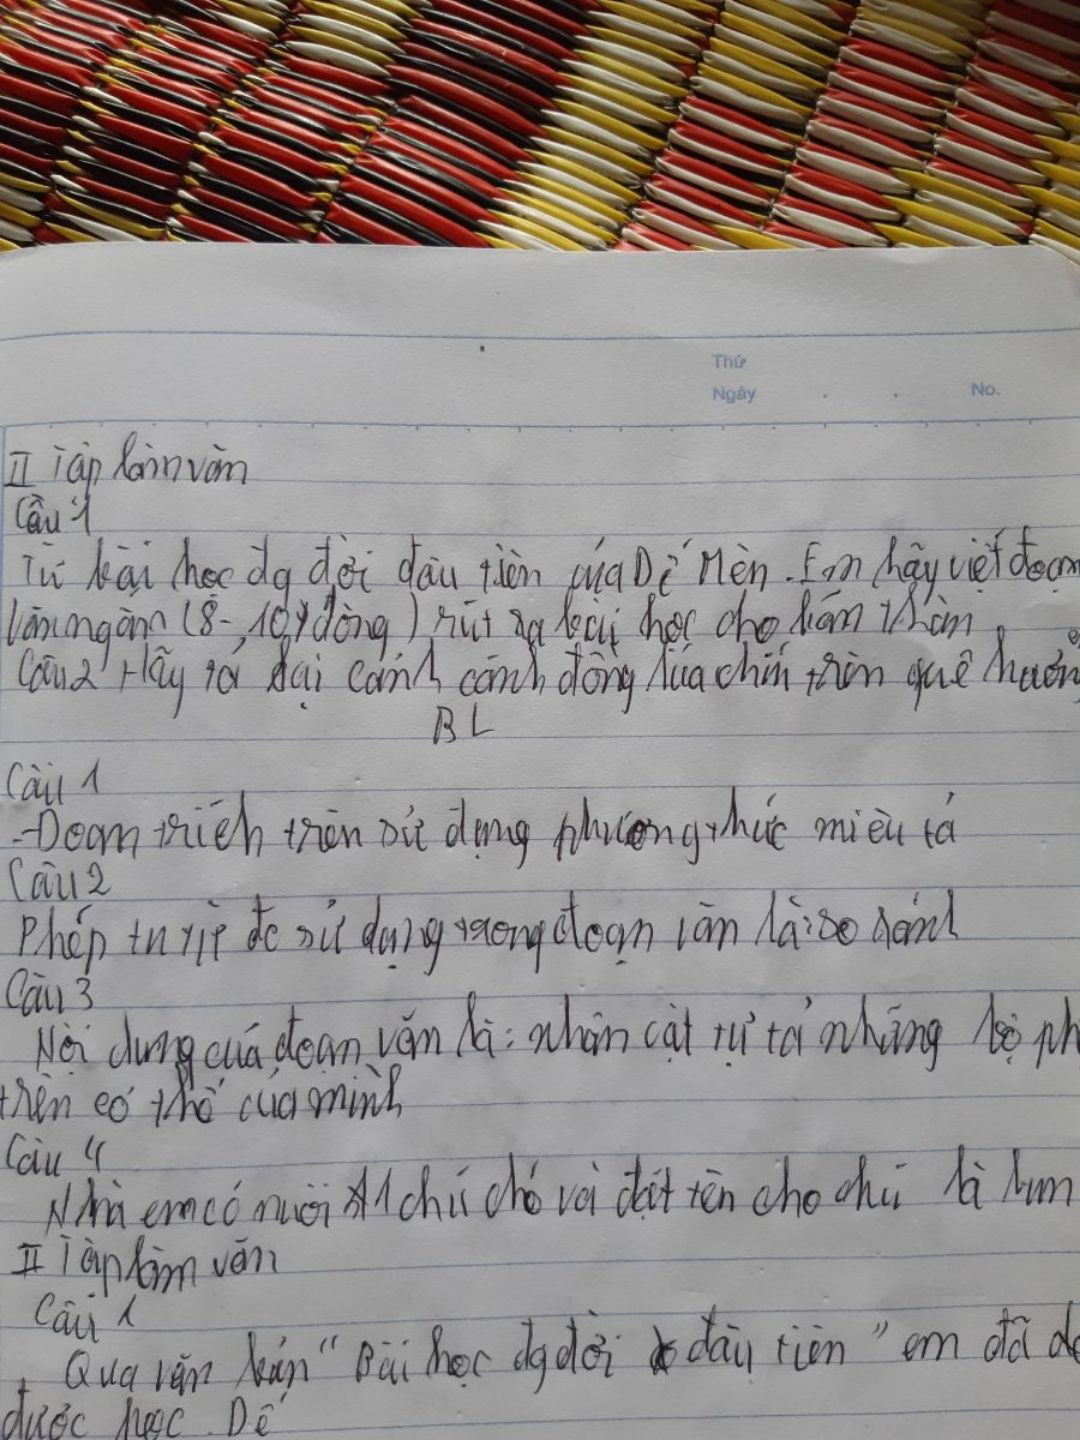 Thứ
Ngày No.
II Tập làm văn
Câu 1
Từ bài học đg đời đầu tiên của Dế Mèn. Em hãy viết đoạn
văn ngắn (8-10 dòng) rút ra bài học cho bản thân
Câu 2 Hãy tả lại cánh cánh đồng lúa chín trên quê hương
BL
Câu 1
- Đoạn trích trên sử dụng phương thức miêu tả
Câu 2
Phép tu từ đc sử dụng trong đoạn văn là: so sánh
Câu 3
Nội dung của đoạn văn là: nhân vật tự tả những bộ ph
trên cơ thể của mình
Câu 4
Nhà em có nuôi 1 chú chó và đặt tên cho chú là lun
II Tập làm văn
Câu 1
Qua văn bản "Bài học đg đời đầu tiên" em đã
được học. Dế